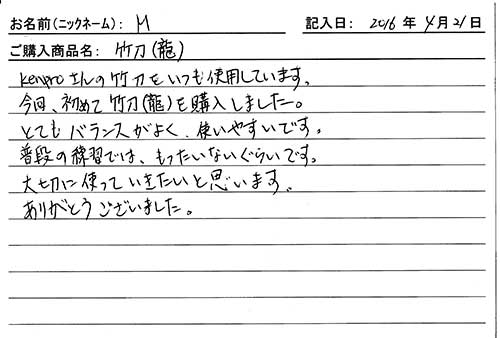 お名前（ニックネーム）： M 記入日： 2016 年 4 月 21 日
ご購入商品名： 竹刀（龍）
Kenproさんの竹刀をいつも使用しています。
今回、初めて竹刀（龍）を購入しました。
とてもバランスがよく、使いやすいです。
普段の練習では、もったいないぐらいです。
大切に使っていきたいと思います。
ありがとうございました。